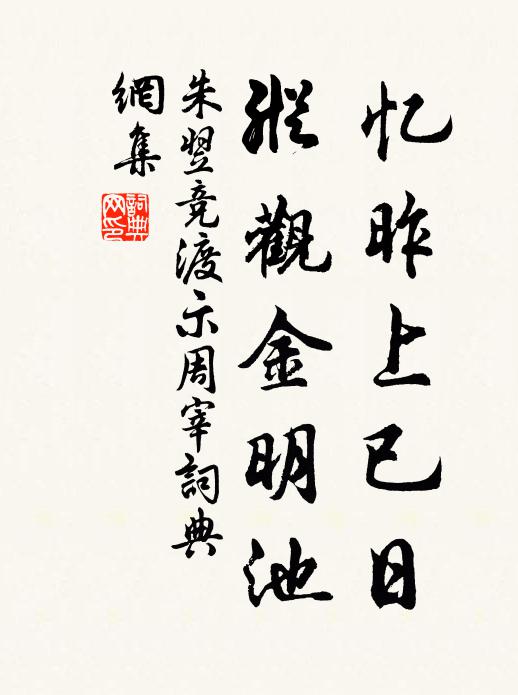 忆昨上巳日
纵觀金明池
朱翌竞渡示周宰詞典
網集
詞典
网印